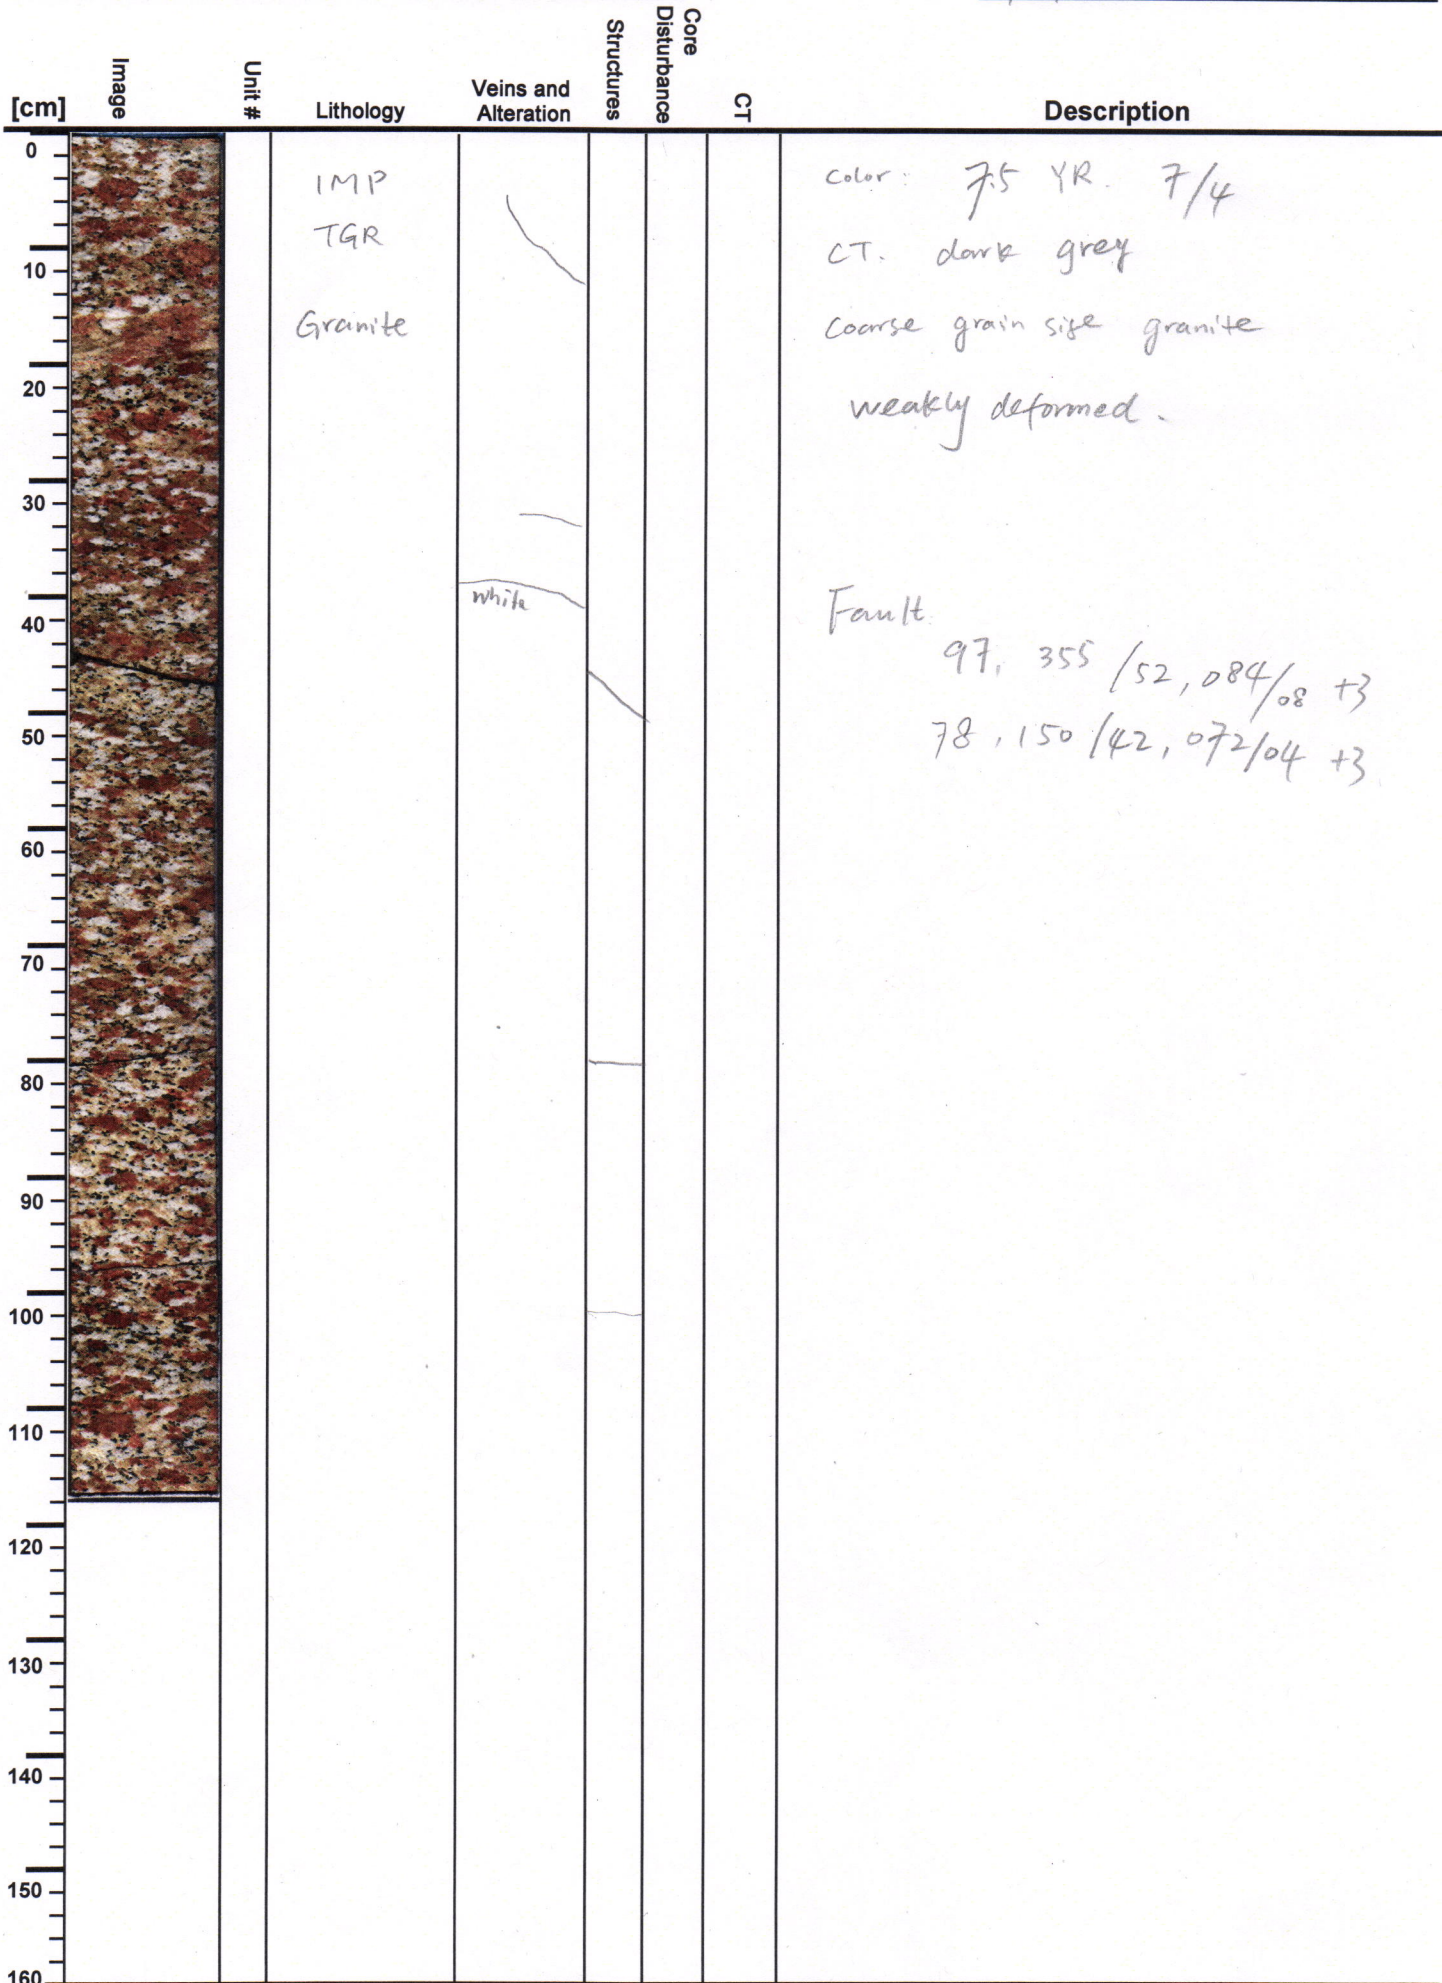 [cm] Image Unit # Lithology Veins and Alteration Structures Core Disturbance CT Description
0
10
20
30
40
50
60
70
80
90
100
110
120
130
140
150
160
IMP
TGR
Granite
white
Color: 7.5 YR. 7/4
CT. dark grey
coarse grain size granite
weakly deformed.
Fault
97, 355 /52, 084/08 +3
78, 150 /42, 072/04 +3